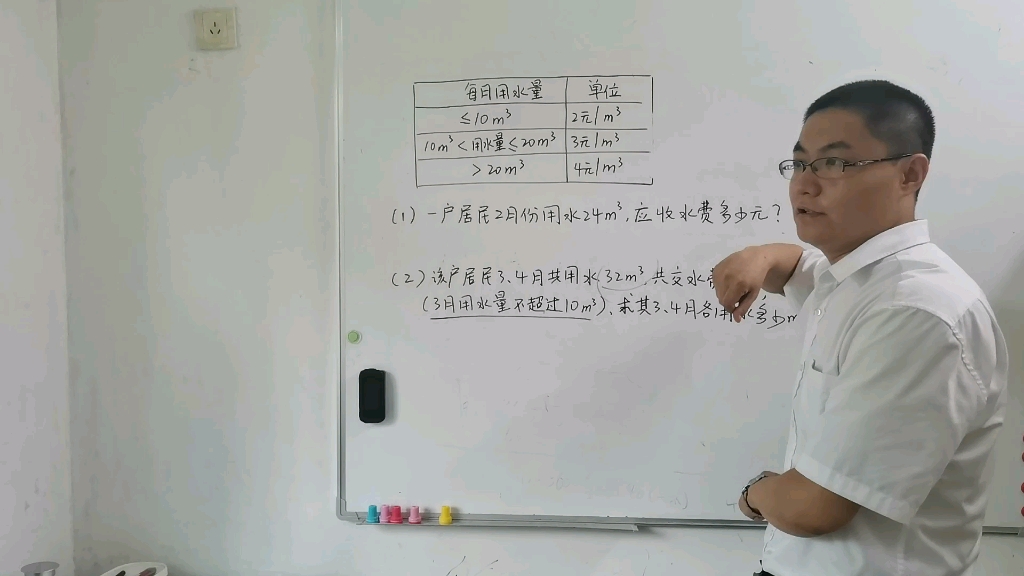 每月用水量 单位
≤10m³ 2元/m³
10m³<用水量≤20m³ 3元/m³
>20m³ 4元/m³
(1)一户居民2月份用水24m³,应收水费多少元?
(2)该户居民3、4月共用水32m³,共交水
(3月用水量不超过10m³)、求其3、4月各用水多少m